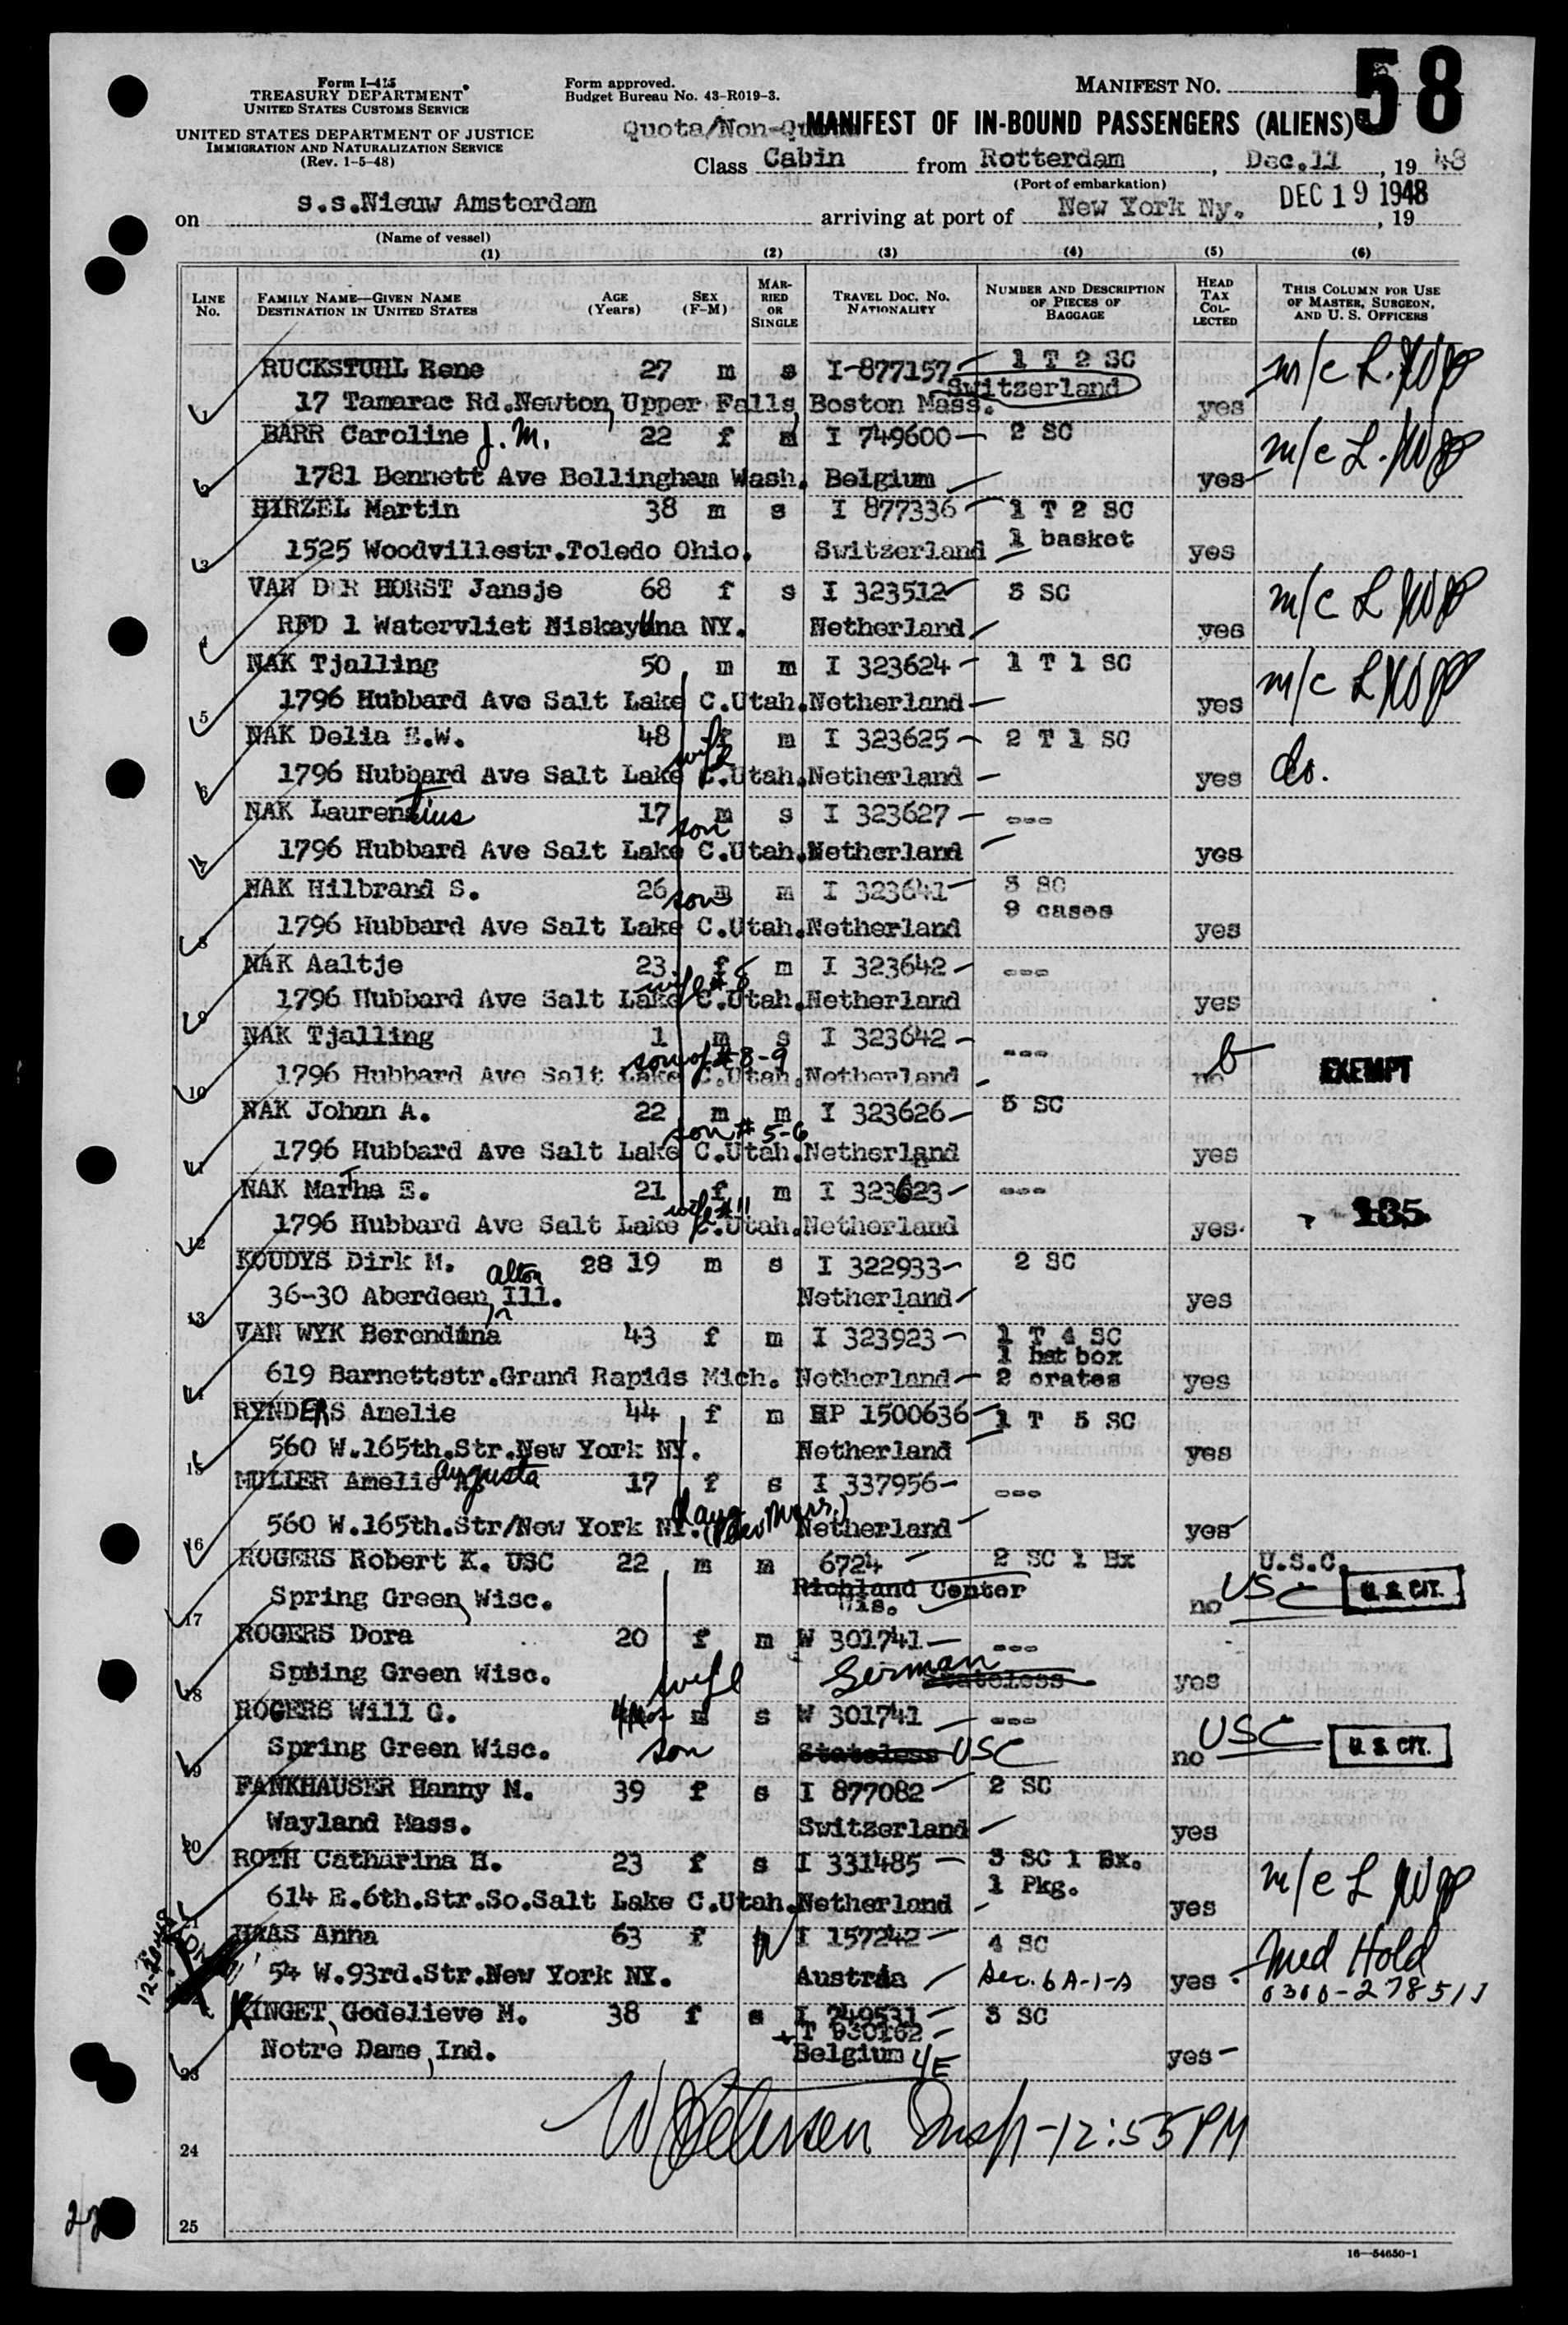 Form I-415
TREASURY DEPARTMENT
UNITED STATES CUSTOMS SERVICE
UNITED STATES DEPARTMENT OF JUSTICE
IMMIGRATION AND NATURALIZATION SERVICE
(Rev. 1-5-48)
Form approved.
Budget Bureau No. 43-R019-3.
MANIFEST No. 58
Quota/Non-Qu MANIFEST OF IN-BOUND PASSENGERS (ALIENS)
Class Cabin from Rotterdam, Dec.11, 19 48
(Port of embarkation)
on s.s.Nieuw Amsterdam arriving at port of New York Ny. DEC 19 1948, 19
(Name of vessel)
(1) (2) (3) (4) (5) (6)
LINE No. FAMILY NAME—GIVEN NAME DESTINATION IN UNITED STATES AGE (Years) SEX (F-M) MARRIED OR SINGLE TRAVEL DOC. NO. NATIONALITY NUMBER AND DESCRIPTION OF PIECES OF BAGGAGE HEAD TAX COLLECTED THIS COLUMN FOR USE OF MASTER, SURGEON, AND U. S. OFFICERS
RUCKSTUHL Rene 27 m s I-877157 1 T 2 SC m/c L.
1 17 Tamarac Rd.Newton, Upper Falls, Boston Mass. Switzerland yes
BARR Caroline J. M. 22 f m I 749600 2 SC m/c L.
2 1781 Bennett Ave Bellingham Wash. Belgium yes
HIRZEL Martin 38 m s I 877336 1 T 2 SC
3 1525 Woodvillestr.Toledo Ohio. Switzerland 1 basket yes
VAN DER HORST Jansje 68 f s I 323512 3 SC m/c L
4 RFD 1 Watervliet Niskayuna NY. Netherland yes
NAK Tjalling 50 m m I 323624 1 T 1 SC m/c L
5 1796 Hubbard Ave Salt Lake C.Utah. Netherland yes
NAK Delia E.W. 48 f wife m I 323625 2 T 1 SC
6 1796 Hubbard Ave Salt Lake C.Utah. Netherland yes do.
NAK Laurentius 17 m son s I 323627 ---
7 1796 Hubbard Ave Salt Lake C.Utah. Netherland yes
NAK Hilbrand S. 26 son m m I 323641 3 SC
9 cases
8 1796 Hubbard Ave Salt Lake C.Utah. Netherland yes
NAK Aaltje 23 f m I 323642 ---
wife #8
9 1796 Hubbard Ave Salt Lake C.Utah. Netherland yes
NAK Tjalling 1 m s I 323642 ---
son of #8-9
10 1796 Hubbard Ave Salt Lake C.Utah. Netherland no EXEMPT
NAK Johan A. 22 m m I 323626 3 SC
son #5-6
11 1796 Hubbard Ave Salt Lake C.Utah. Netherland yes
NAK Martha E. 21 f m I 323623 ---
wife #11
12 1796 Hubbard Ave Salt Lake C.Utah. Netherland yes 135
KOUDYS Dirk M. 28 19 m s I 322933 2 SC
13 36-30 Aberdeen, Alton Ill. Netherland yes
VAN WYK Berendina 43 f m I 323923 1 T 4 SC
1 hat box
14 619 Barnettstr.Grand Rapids Mich. Netherland 2 crates yes
RYNDERS Amelie 44 f m RP 1500636 1 T 5 SC
15 560 W.165th.Str.New York NY. Netherland yes
MULLER Amelie Augusta 17 f s I 337956 ---
16 560 W.165th.Str/New York NY. Netherland yes
ROGERS Robert K. USC 22 m m 6724 2 SC 1 Bx U.S.C.
Richland Center
17 Spring Green, Wisc. Wis. no USC U. S. CIT.
ROGERS Dora 20 f m W 301741 ---
18 Spring Green Wisc. wife German Stateless yes
ROGERS Will G. m s W 301741 ---
19 Spring Green Wisc. son Stateless USC no USC U. S. CIT.
FANKHAUSER Hanny M. 39 f s I 877082 2 SC
20 Wayland Mass. Switzerland yes
ROTH Catharina H. 23 f s I 331485 3 SC 1 Bx. m/c L
1 Pkg.
21 614 E.6th.Str.So.Salt Lake C.Utah. Netherland yes
HAAS Anna 63 f I 157242 4 SC Med Hold
54 W.93rd.Str.New York NY. Austria Sec. 6 A-1-A yes 0300-278511
KINGET, Godelieve M. 38 f s I 749531 3 SC
+T 930162
23 Notre Dame, Ind. Belgium yes
Insp-12:55PM
24
25
16—54650-1